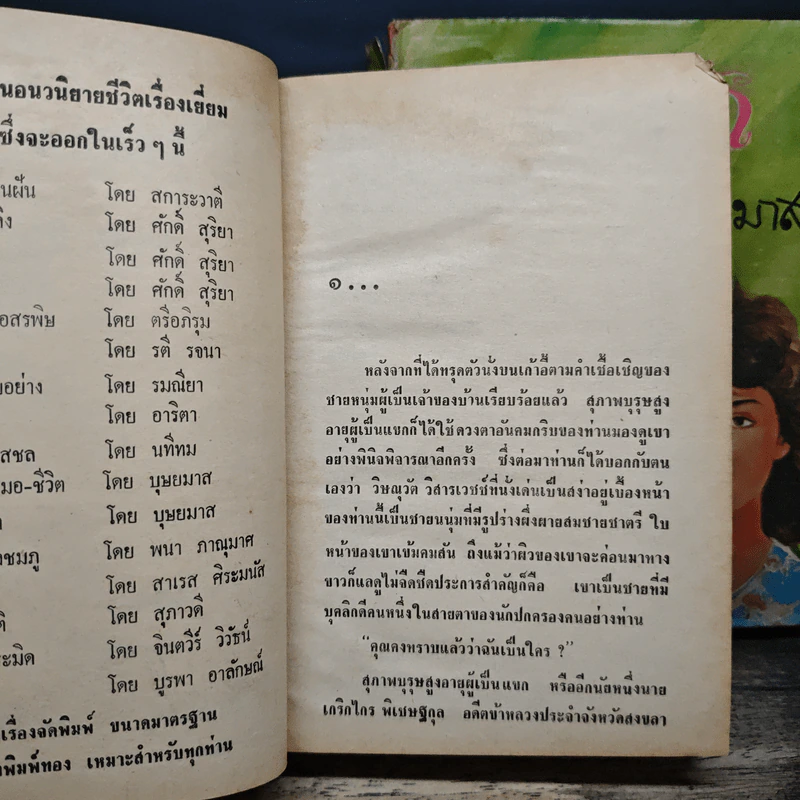 นอนวนิยายชีวิตเรื่องเยี่ยม
ซึ่งจะออกในเร็ว ๆ นี้
นฝัน โดย สการะวาตี
โดย ศักดิ์ สุริยา
โดย ศักดิ์ สุริยา
โดย ศักดิ์ สุริยา
อสรพิษ โดย ตรีอภิรุม
โดย รตี รจนา
อย่าง โดย รมณียา
โดย อาริตา
สชล โดย นทีทม
มอ-ชีวิต โดย บุษยมาส
โดย บุษยมาส
าชมภู โดย พนา ภาณุมาศ
โดย สาเรส ศิระมนัส
ดิ โดย สุภาวดี
ะมิด โดย จินตวีร์ วิวัธน์
โดย บูรพา อาลักษณ์
เรื่องจัดพิมพ์ ขนาดมาตรฐาน
พิมพ์ทอง เหมาะสำหรับทุกท่าน
๑...
หลังจากที่ได้ทรุดตัวนั่งบนเก้าอี้ตามคำเชื้อเชิญของ
ชายหนุ่มผู้เป็นเจ้าของบ้านเรียบร้อยแล้ว สุภาพบุรุษสูง
อายุผู้เป็นแขกก็ได้ใช้ดวงตาอันคมกริบของท่านมองดูเขา
อย่างพินิจพิจารณาอีกครั้ง ซึ่งต่อมาท่านก็ได้บอกกับตน
เองว่า วิษณุวัต วิสารเวชช์ที่นั่งเด่นเป็นสง่าอยู่เบื้องหน้า
ของท่านนี้เป็นชายหนุ่มที่มีรูปร่างผึ่งผายสมชายชาตรี ใบ
หน้าของเขาเข้มคมสัน ถึงแม้ว่าผิวของเขาจะค่อนมาทาง
ขาวก็แลดูไม่จืดชืดประการสำคัญก็คือ เขาเป็นชายที่มี
บุคลิกดีคนหนึ่งในสายตาของนักปกครองคนอย่างท่าน
“คุณคงทราบแล้วว่าฉันเป็นใคร ?”
สุภาพบุรุษสูงอายุผู้เป็นแขก หรืออีกนัยหนึ่งนาย
เกริกไกร พิเชษฐิกุล อดีตข้าหลวงประจำจังหวัดสงขลา
มาส